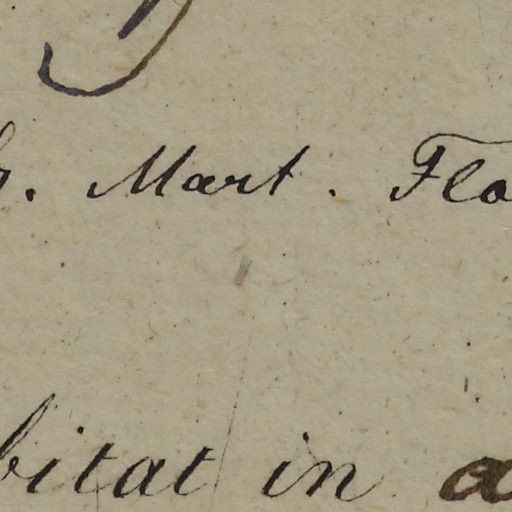 . Mart. Flo
bitat in a